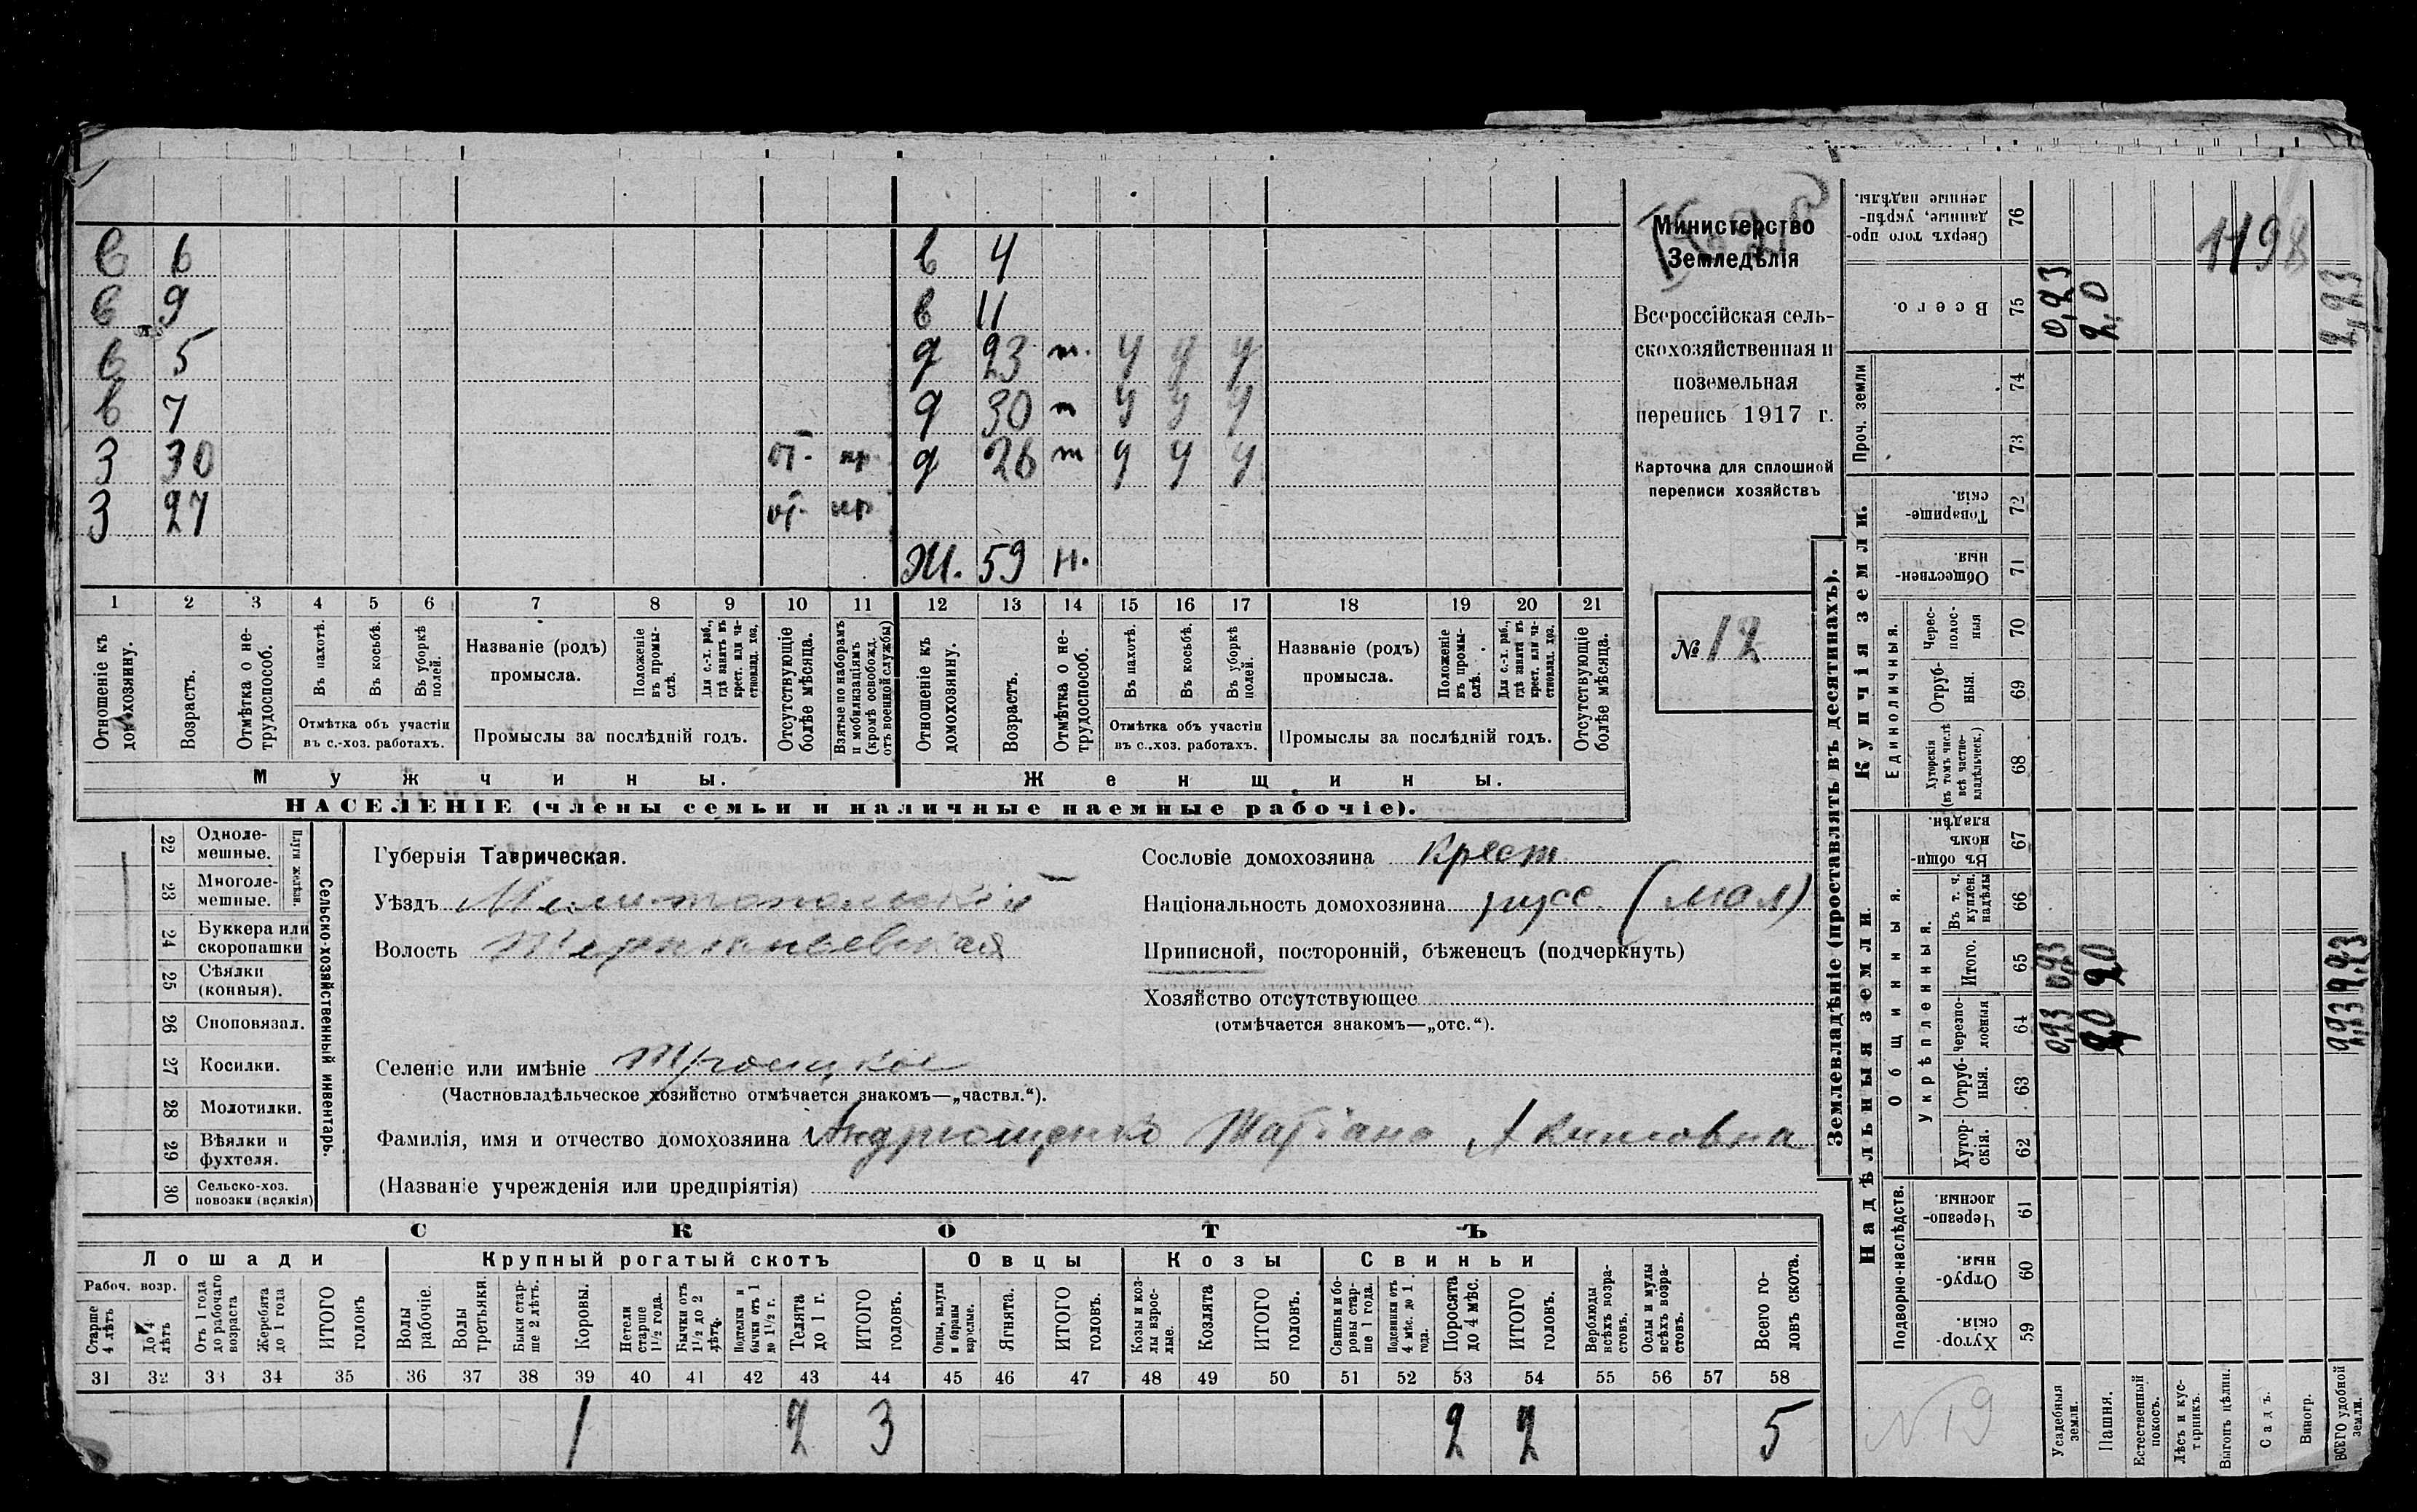 в 6 в 4
в 9 в 11
в 5 д 23 т. у у у
в 7 д 30 т у у у
З 30 от. пр д 26 т у у у
З 27 от. пр
Ж. 59 н.
1 2 3 4 5 6 7 8 9 10 11 12 13 14 15 16 17 18 19 20 21
Отношеніе къ домохозяину.
Возрастъ.
Отмѣтка о нетрудоспособ.
Въ пахотѣ.
Въ косьбѣ.
Въ уборкѣ полей.
Отмѣтка объ участіи
въ с.-хоз. работахъ.
Названіе (родъ)
промысла.
Положеніе въ промыслѣ.
Для с.-х. раб., гдѣ занятъ въ крест. или частновлад. хоз.
Промыслы за послѣдній годъ.
Отсутствующіе болѣе мѣсяца.
Взятые по наборамъ и мобилизаціямъ (кромѣ освобожд. отъ военной службы)
Отношеніе къ домохозяину.
Возрастъ.
Отмѣтка о нетрудоспособ.
Въ пахотѣ.
Въ косьбѣ.
Въ уборкѣ полей.
Отмѣтка объ участіи
въ с..хоз. работахъ.
Названіе (родъ)
промысла.
Положеніе въ промыслѣ.
Для с.-х. раб., гдѣ заняти въ крест. или частновлад. хоз.
Промыслы за послѣдній годъ.
Отсутствующіе болѣе мѣсяца.
Мужчины. Женщины.
НАСЕЛЕНІЕ (члены семьи и наличные наемные рабочіе).
Министерство
Земледѣлія
Всероссійская сель-
скохозяйственная и
поземельная
перепись 1917 г.
Карточка для сплошной
переписи хозяйствъ
№ 12
Сельско-хозяйственный инвентарь.
Плуги желѣзн.
22 Одноле-
мешные.
23 Многоле-
мешные.
24 Буккера или
скоропашки
25 Сѣялки
(конныя).
26 Сноповязал.
27 Косилки.
28 Молотилки.
29 Вѣялки и
фухтеля.
30 Сельско-хоз.
повозки (всякія)
Губернія Таврическая.
Уѣздъ Мелитопольскій
Волость
Селеніе или имѣніе Троицкое
(Частновладѣльческое хозяйство отмѣчается знакомъ—„частвл.“).
Фамилія, имя и отчество домохозяина Андрющенко Татіана Акимовна
(Названіе учрежденія или предпріятія)
Сословіе домохозяина Крест
Національность домохозяина русс. (мал)
Приписной, посторонній, бѣженецъ (подчеркнуть)
Хозяйство отсутствующее
(отмѣчается знакомъ—„отс.“).
СКОТЪ
Лошади Крупный рогатый скотъ Овцы Козы Свиньи
Рабоч. возр.
Старше 4 лѣтъ
До 4 лѣтъ
Отъ 1 года до рабочаго возраста
Жеребята до 1 года
ИТОГО головъ
Волы рабочіе.
Волы третьяки.
Быки старше 2 лѣтъ.
Коровы.
Нетели старше 1½ года.
Бычки отъ 1½ до 2 лѣтъ.
Подтелки и бычки отъ 1 до 1½ г.
Телята до 1 г.
ИТОГО головъ.
Овцы, валухи и бараны взрослые.
Ягнята.
ИТОГО головъ.
Козы и козлы взрослые.
Козлята
ИТОГО головъ.
Свиньи и боровы старше 1 года.
Подсвинки отъ 4 мѣс. до 1 года.
Поросята до 4 мѣс.
ИТОГО головъ.
Верблюды всѣхъ возрастовъ.
Ослы и мулы всѣхъ возрастовъ.
Всего головъ скота.
31 32 33 34 35 36 37 38 39 40 41 42 43 44 45 46 47 48 49 50 51 52 53 54 55 56 57 58
1 2 3 2 2 5
Землевладѣніе (проставлять въ десятинахъ).
Надѣльныя земли.
Купчія земли.
Проч. земли
Подворно-наслѣдств.
Общинныя.
Укрѣпленныя.
Единоличныя.
Сверхъ того проданные, укрѣпленные надѣлы. 76
Всего. 75 0,23 2,0 2,23
74
73
Товарищескія. 72
Общественныя 71
Чересполосныя 70
Отрубныя. 69
Хуторскія (въ томъ числѣ всѣ частновладѣльческ.) 68
Въ общинномъ владѣн. 67
Въ т. ч. куплен. надѣлы 66
Итого. 65 0,23 2,0 2,23
Черезполосныя 64 0,23 2,0 2,23
Отрубныя. 63
Хуторскія. 62
Черезполосныя. 61
Отрубныя. 60
Хуторскія. 59
1198
N 19
Усадебныя земли.
Пашня.
Естественный покосъ.
Лѣсъ и кустарникъ.
Выгонъ цѣлин.
Садъ.
Виногр.
ВСЕГО удобной земли.